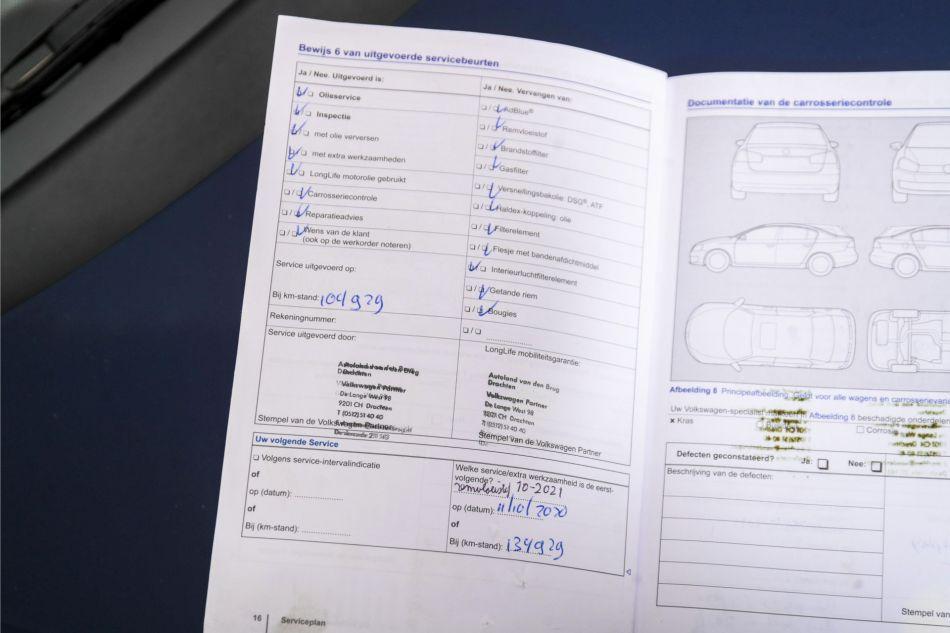 Bewijs 6 van uitgevoerde servicebeurten
Ja / Nee. Uitgevoerd is:
Olieservice
Inspectie
met olie verversen
met extra werkzaamheden
LongLife motorolie gebruikt
Carrosseriecontrole
Reparatieadvies
Wens van de klant
(ook op de werkorder noteren)
Service uitgevoerd op:
Bij km-stand: 104929
Rekeningnummer:
Service uitgevoerd door:
Volkswagen Partner
De Lange West 98
9201 CH Drachten
T (0512) 51 40 40
Stempel van de Volkswagen Partner
Ja / Nee. Vervangen van:
AdBlue®
Remvloeistof
Brandstoffilter
Gasfilter
Versnellingsbakolie DSG®, ATF
Haldex-koppeling: olie
Filterelement
Flesje met bandenafdichtmiddel
Interieurluchtfilterelement
Getande riem
Bougies
LongLife mobiliteitsgarantie:
Autoland van den Brug
Drachten
Volkswagen Partner
De Lange West 98
9201 CH Drachten
T (0512) 51 40 40
Stempel van de Volkswagen Partner
Uw volgende Service
Volgens service-intervalindicatie
of
op (datum):
of
Bij (km-stand):
Welke service/extra werkzaamheid is de eerst-
volgende? remvloeistof 10-2021
op (datum): 11/10/2020
of
Bij (km-stand): 134929
16 Serviceplan
Documentatie van de carrosseriecontrole
Afbeelding 8 Principeafbeelding: Geldt voor alle wagens en
Uw Volkswagen-specialist Afbeelding 8 beschadigde
x Kras
Defecten geconstateerd? Ja: Nee:
Beschrijving van de defecten:
Stempel van